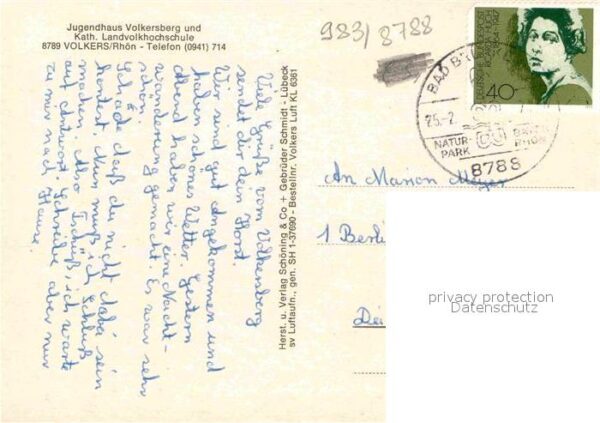 Jugendhaus Volkersberg und
Kath. Landvolkhochschule
8789 VOLKERS/Rhön - Telefon (0941) 714
983/8788
Viele Grüße vom Volkersberg
sendet dir dein Horst.
Wir sind gut angekommen und
haben schönes Wetter. Gestern
Abend haben wir eine Nacht-
wanderung gemacht. Es war sehr
schön.
Schade daß du nicht dabei sein
konntest. Nun muß ich Schluß
machen. Also Tschüß, ich warte
auf Antwort. Schreibe aber nur
zu mir nach Hause.
Herst. u. Verlag Schöning & Co + Gebrüder Schmidt - Lübeck
sv Luftaufn., gen. SH 1-37690 - Bestellnr. Volkers Luft KL 6361
DEUTSCHE BUNDESPOST
RICARDA HUCH
1864-1947
40
BAD
25.-2.
NATUR-
PARK
RHÖN
8788
An Marion Meyer
1 Berli
privacy protection
Datenschutz